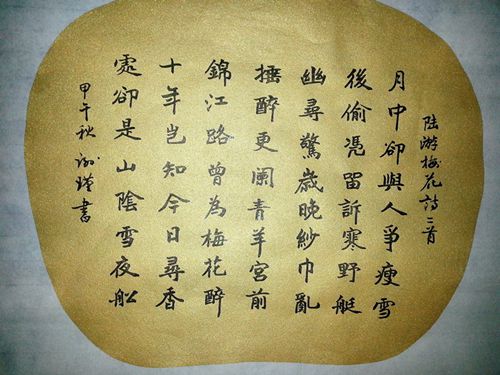 陸游梅花詩二首
月中卻與人爭瘦雪
後偷凴留訴寒野艇
幽尋驚歲晚紗巾亂
插醉更闌青羊宮前
錦江路曾為梅花醉
十年岂知今日尋香
處卻是山陰雪夜舩
甲午秋瑾書